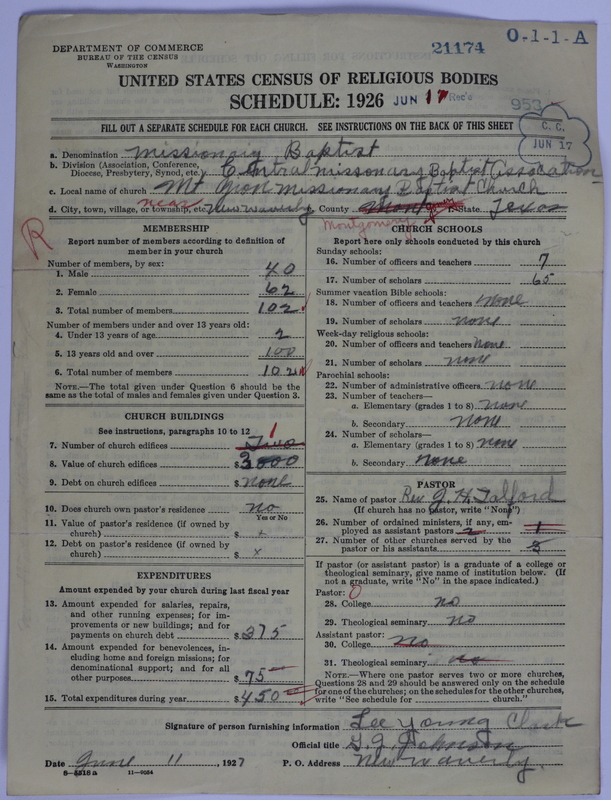 DEPARTMENT OF COMMERCE
BUREAU OF THE CENSUS
WASHINGTON
21174
0-1-1-A
UNITED STATES CENSUS OF RELIGIOUS BODIES
SCHEDULE: 1926 JUN 17 Rec'd
953
C. C.
JUN 17
FILL OUT A SEPARATE SCHEDULE FOR EACH CHURCH. SEE INSTRUCTIONS ON THE BACK OF THIS SHEET
a. Denomination Missionary Baptist
b. Division (Association, Conference, Diocese, Presbytery, Synod, etc.) Central missonary Baptist Assocation
c. Local name of church Mt. Zion missionary Baptist Church
near
d. City, town, village, or township, etc. New Waverly County State Texas
Montgomery
R
MEMBERSHIP
Report number of members according to definition of
member in your church
Number of members, by sex:
1. Male 40
2. Female 62
3. Total number of members 102
Number of members under and over 13 years old:
4. Under 13 years of age 2
5. 13 years old and over 100
6. Total number of members 102
NOTE.—The total given under Question 6 should be the
same as the total of males and females given under Question 3.
CHURCH BUILDINGS
See instructions, paragraphs 10 to 12
7. Number of church edifices Two 1
8. Value of church edifices $ 3000
9. Debt on church edifices $ none
10. Does church own pastor's residence no
Yes or No
11. Value of pastor's residence (if owned by
church) $ x
12. Debt on pastor's residence (if owned by
church) $ x
EXPENDITURES
Amount expended by your church during last fiscal year
13. Amount expended for salaries, repairs,
and other running expenses; for im-
provements or new buildings; and for
payments on church debt $ 375
14. Amount expended for benevolences, in-
cluding home and foreign missions; for
denominational support; and for all
other purposes $ 75
15. Total expenditures during year $ 450
CHURCH SCHOOLS
Report here only schools conducted by this church
Sunday schools:
16. Number of officers and teachers 7
17. Number of scholars 65
Summer vacation Bible schools:
18. Number of officers and teachers none
19. Number of scholars none
Week-day religious schools:
20. Number of officers and teachers none
21. Number of scholars none
Parochial schools:
22. Number of administrative officers none
23. Number of teachers—
a. Elementary (grades 1 to 8) none
b. Secondary None
24. Number of scholars—
a. Elementary (grades 1 to 8) none
b. Secondary None
PASTOR
25. Name of pastor Rev J. H. Talford
(If church has no pastor, write "None")
26. Number of ordained ministers, if any, em-
ployed as assistant pastors 2 1
27. Number of other churches served by the
pastor or his assistants
If pastor (or assistant pastor) is a graduate of a college or
theological seminary, give name of institution below. (If
not a graduate, write "No" in the space indicated.)
Pastor: 0
28. College no
29. Theological seminary no
Assistant pastor:
30. College No
31. Theological seminary no
NOTE.—Where one pastor serves two or more churches,
Questions 28 and 29 should be answered only on the schedule
for one of the churches; on the schedules for the other churches,
write "See schedule for church."
Signature of person furnishing information Lee Young Clark
Official title G. J. Johnson
Date June 11, 1927 P. O. Address New Waverly.
8-5518a 11-9034